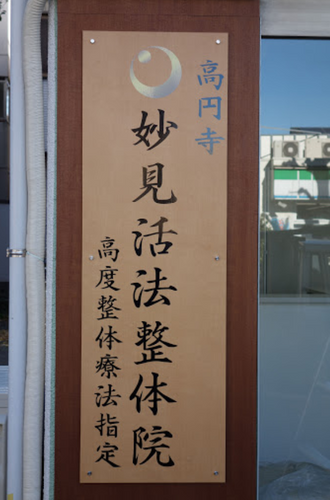 高円寺
妙見活法整体院
高度整体療法指定